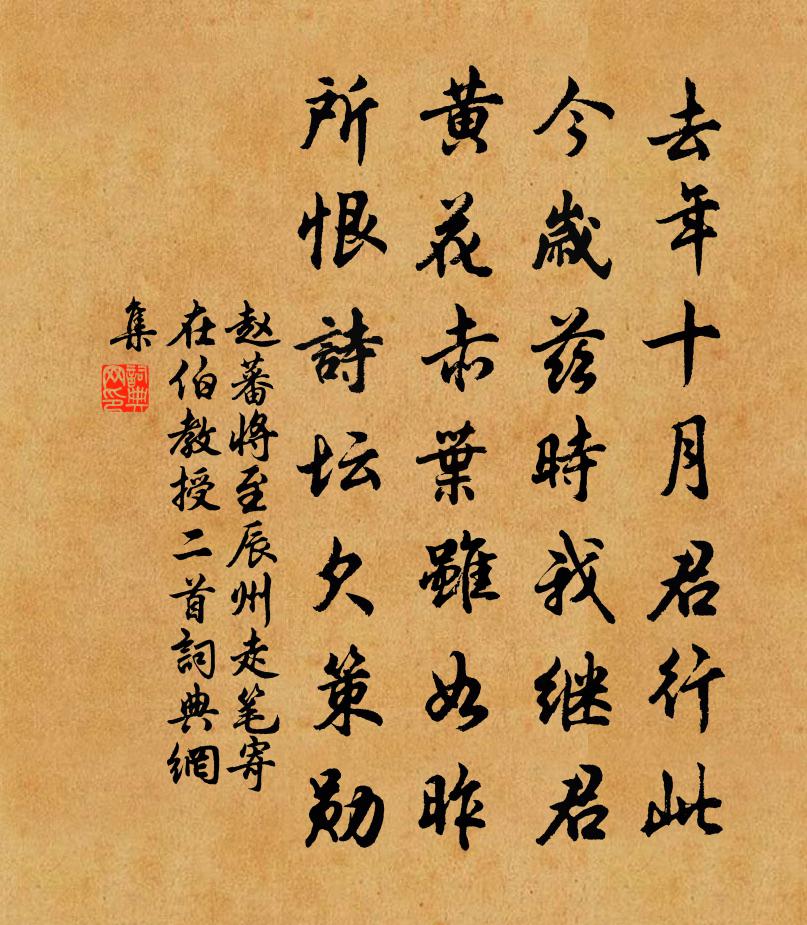 去年十月君行此
今岁兹時我继君
黄花赤葉雖如昨
所恨詩坛欠策勋
赵蕃將至辰州走笔寄
在伯教授二首詞典網
集
詞典網印